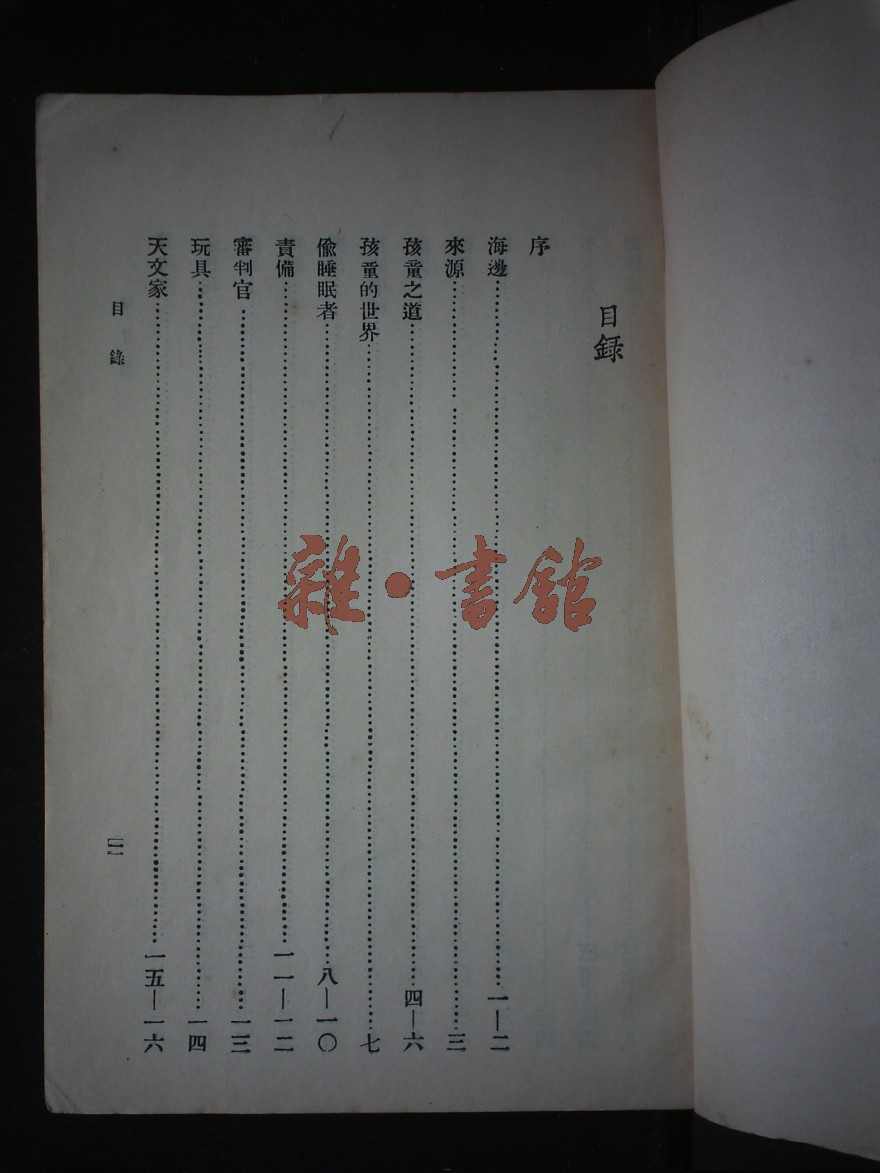 目錄
序
海邊……一—二
來源……三
孩童之道……四—六
孩童的世界……七
偸睡眠者……八—一〇
責備……一一—一二
審判官……一三
玩具……一四
天文家……一五—一六
目錄
[一]
雜·書館